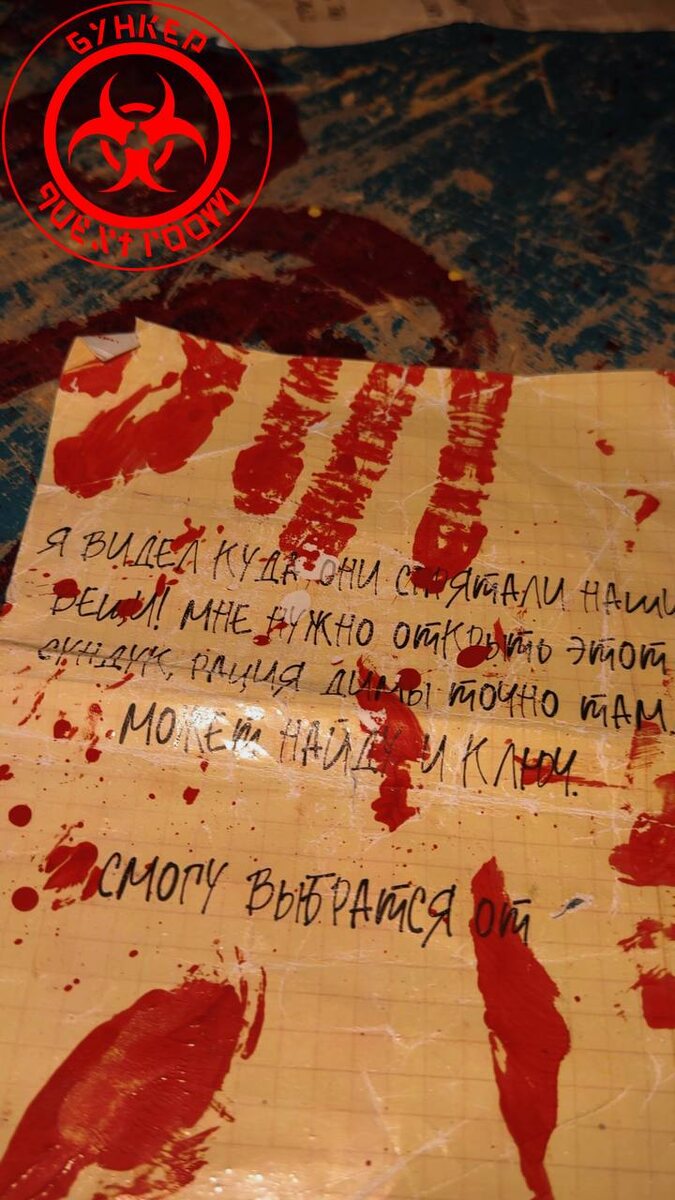 БУНКЕР
quextroom
Я ВИДЕЛ КУДА ОНИ СПРЯТАЛИ НАШИ
ВЕЩИ! МНЕ НУЖНО ОТКРЫТЬ ЭТОТ
СУНДУК, РАЦИЯ ДИМЫ ТОЧНО ТАМ.
МОЖЕТ НАЙДУ И КЛЮЧ.
СМОГУ ВЫБРАТСЯ ОТ